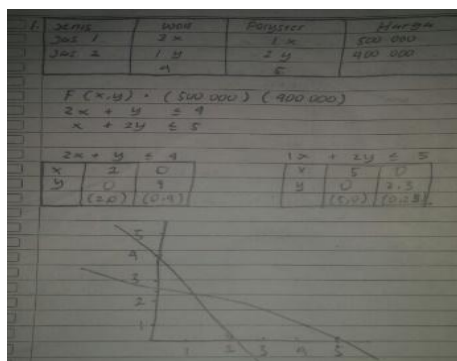 1. Jenis Wol Polyster Harga
Jas 1 2 x 1 x 500 000
Jas 2 1 y 2 y 400 000
4 5
F (x,y) = (500 000) (400 000)
2x + y ≤ 4
x + 2y ≤ 5
2x + y ≤ 4 1x + 2y ≤ 5
x 2 0 x 5 0
y 0 4 y 0 2,5
(2,0) (0,4) (5,0) (0,2,5)
5
4
3
2
1
1 2 3 4 5